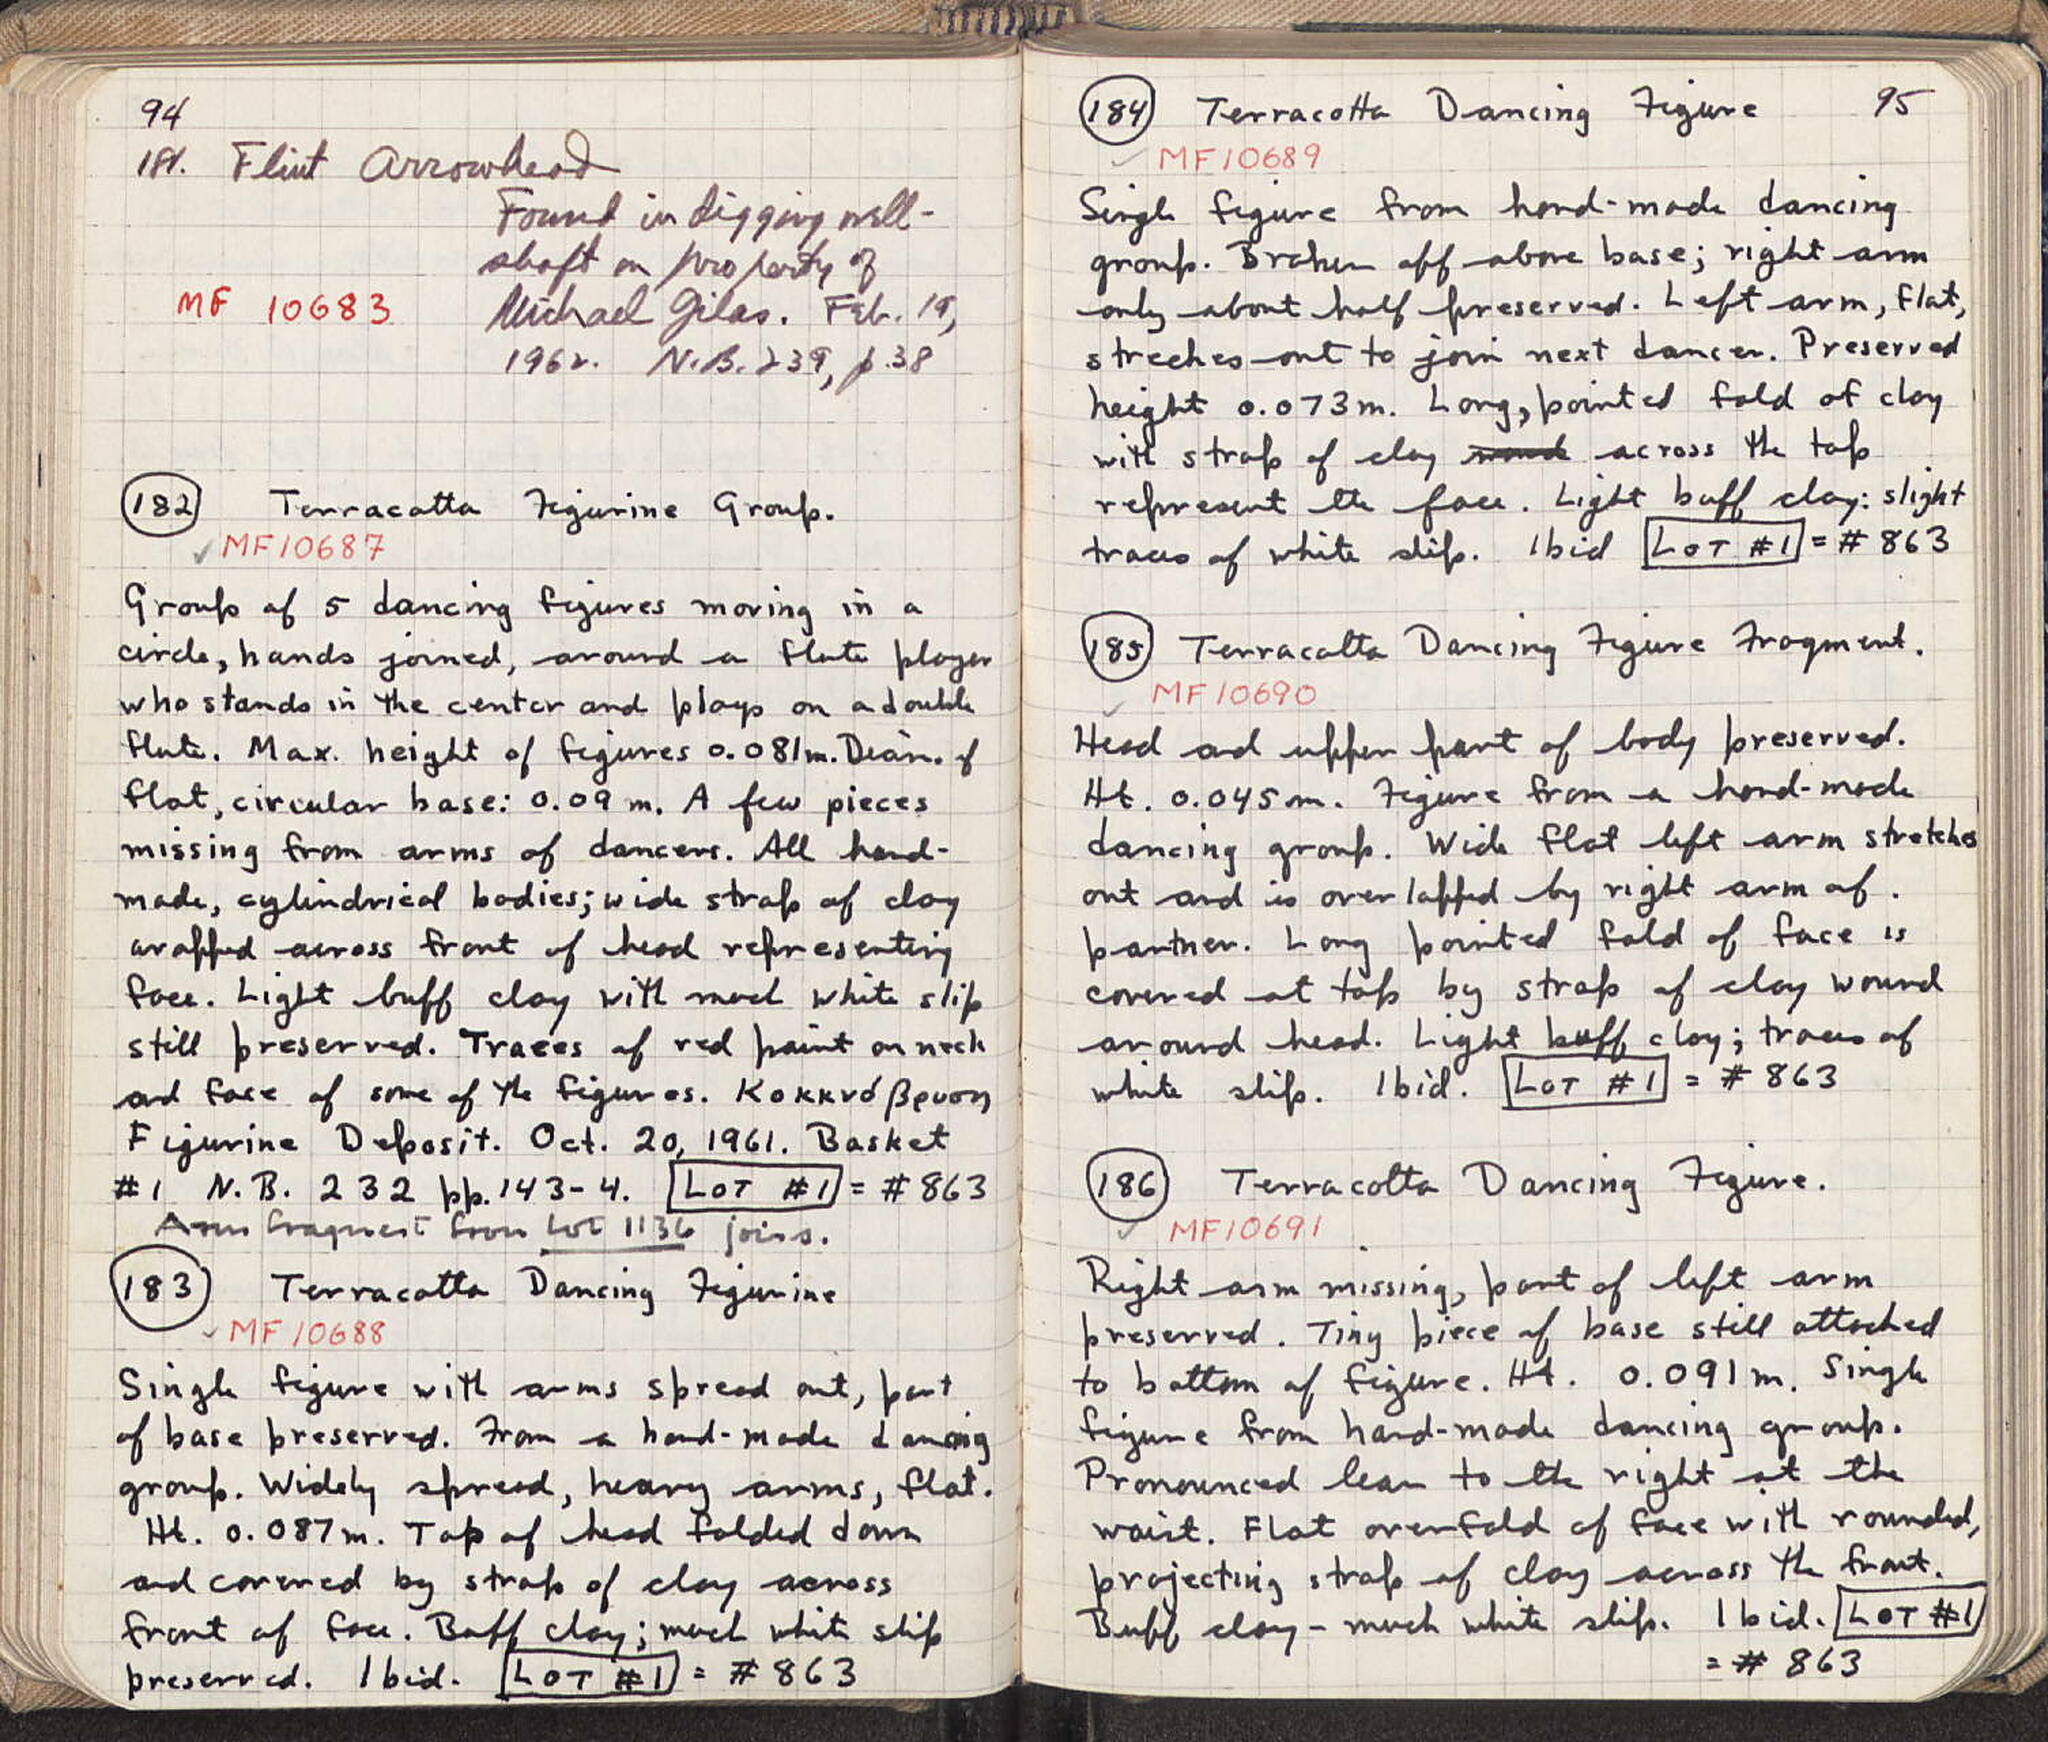 94
181. Flint Arrowhead
Found in digging well-
shaft on property of
MF 10683 Michael Gilas. Feb. 19,
1962. N.B. 239, p.38
182 Terracotta Figurine Group.
✓ MF10687
Group of 5 dancing figures moving in a
circle, hands joined, around a flute player
who stands in the center and plays on a double
flute. Max. height of figures 0.081m. Diam. of
flat, circular base: 0.09 m. A few pieces
missing from arms of dancers. All hand-
made, cylindrical bodies; wide strap of clay
wrapped across front of head representing
face. Light buff clay with much white slip
still preserved. Traces of red paint on neck
and face of some of the figures.
Figurine Deposit. Oct. 20, 1961. Basket
#1 N.B. 232 pp.143-4. LOT #1 = #863
Arm fragment from Lot 1136 joins.
183 Terracotta Dancing Figurine
✓ MF10688
Single figure with arms spread out, part
of base preserved. From a hand-made dancing
group. Widely spread, heavy arms, flat.
Ht. 0.087m. Top of head folded down
and covered by strap of clay across
front of face. Buff clay; much white slip
preserved. Ibid. LOT #1 = #863
184 Terracotta Dancing Figure 95
✓ MF10689
Single figure from hand-made dancing
group. Broken off above base; right arm
only about half preserved. Left arm, flat,
streches out to join next dancer. Preserved
height 0.073m. Long, pointed fold of clay
with strap of clay across the top
represent the face. Light buff clay: slight
traces of white slip. Ibid LOT #1 = #863
185 Terracotta Dancing Figure Fragment.
✓ MF10690
Head and upper part of body preserved.
Ht. 0.045m. Figure from a hand-made
dancing group. Wide flat left arm stretches
out and is overlapped by right arm of.
partner. Long pointed fold of face is
covered at top by strap of clay wound
around head. Light buff clay; traces of
white slip. Ibid. LOT #1 = #863
186 Terracotta Dancing Figure.
✓ MF10691
Right arm missing, part of left arm
preserved. Tiny piece of base still attached
to bottom of figure. Ht. 0.091m. Single
figure from hand-made dancing group.
Pronounced lean to the right at the
waist. Flat overfold of face with rounded,
projecting strap of clay across the front.
Buff clay - much white slip. Ibid. LOT #1
= # 863